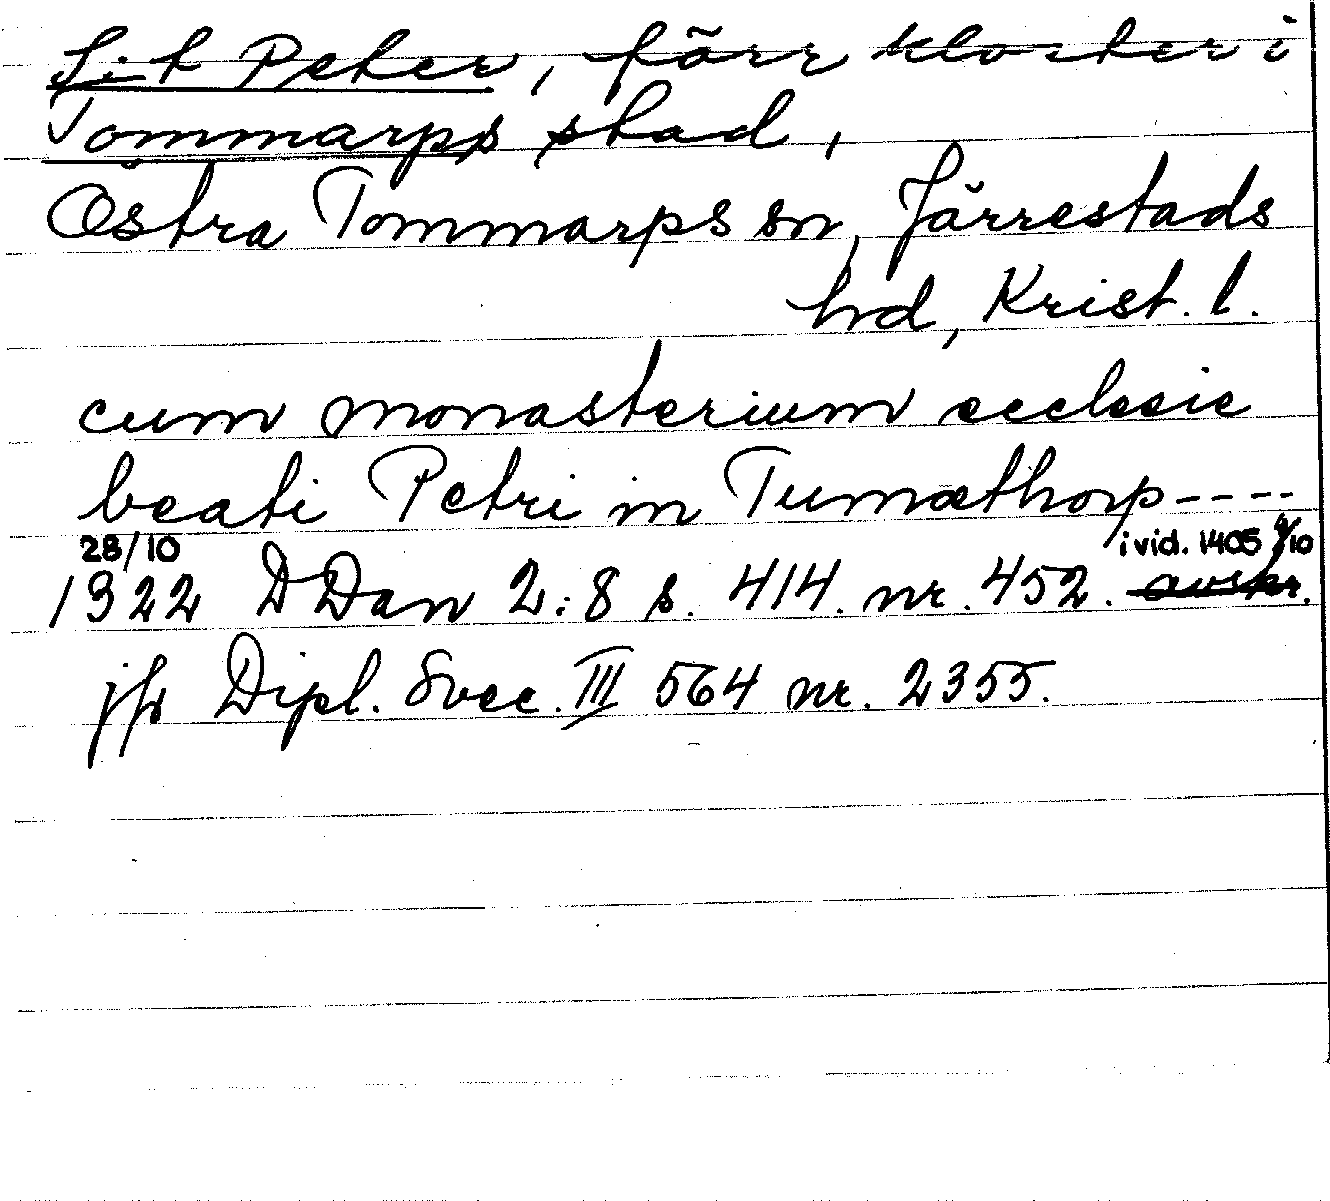 S:t Peter, förr kloster i
Tommarps stad,
Östra Tommarps sn, Järrestads
hd, Krist. l.
cum monasterium ecclesie
beati Petri in Tumæthorp----
28/10 i vid. 1405 9/10
1322 DDan 2:8 s. 414. nr. 452. avskr.
jfr Dipl. Svec. III 564 nr. 2355.